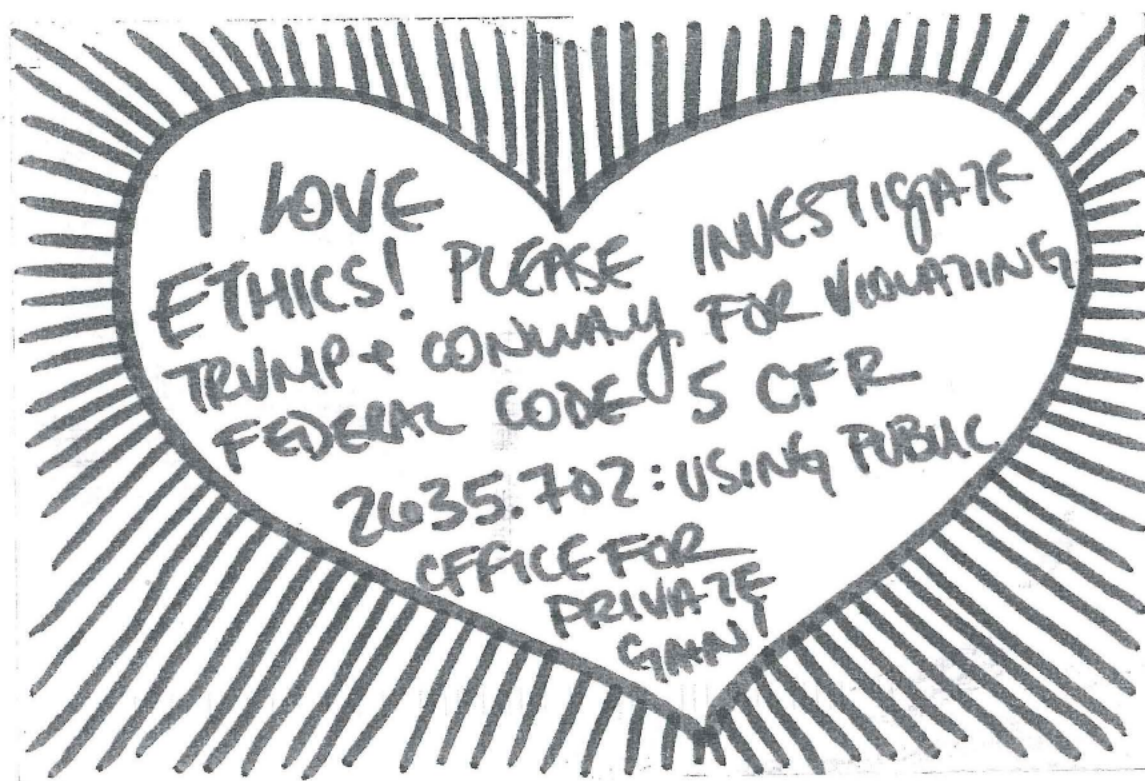 I LOVE
ETHICS! PLEASE INVESTIGATE
TRUMP + CONWAY FOR VIOLATING
FEDERAL CODE 5 CFR
2635.702: USING PUBLIC
OFFICE FOR
PRIVATE
GAIN!